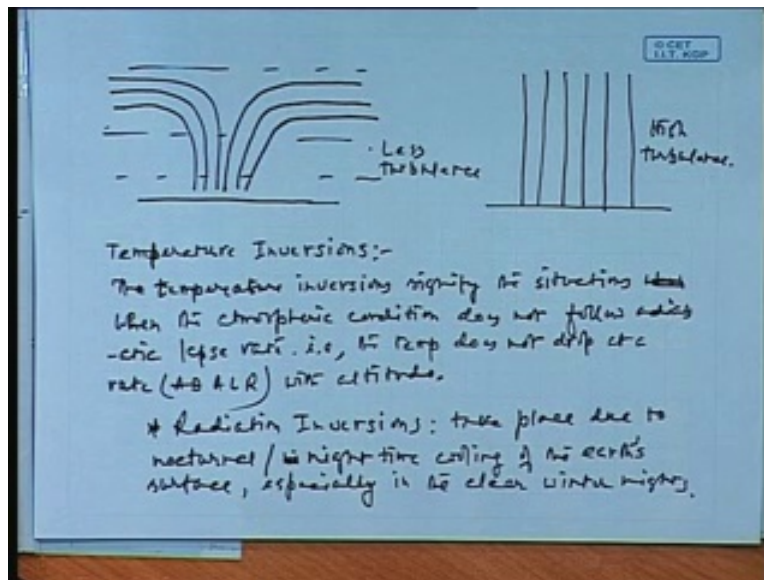 © CET
I.I.T. KGP
Less
turbulence
High
turbulence.
Temperature Inversions:-
The temperature inversions signify the situations
when the atmospheric condition does not follow adiab
-atic lapse rate. i.e., the temp does not drop at a
rate (ALR) with altitude.
* Radiation Inversions: take place due to
nocturnal / night time cooling of the earth's
surface, especially in the clear winter nights.